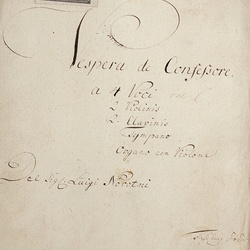 Vespera de Confessore.
a 4 Voci
2 Violinis
2 Clarinis
Tympano
Organo con Violone
Del Sig: Luigi Novotni